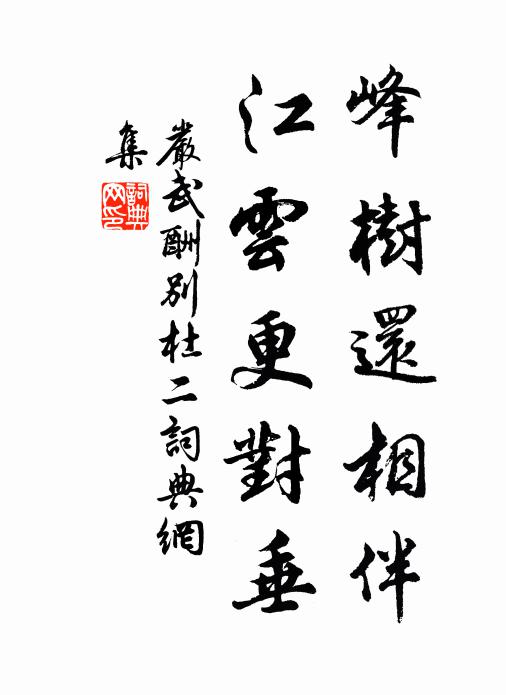 峰樹還相伴
江雲更對垂
嚴武酬別杜二詞典網
集
詞典網印